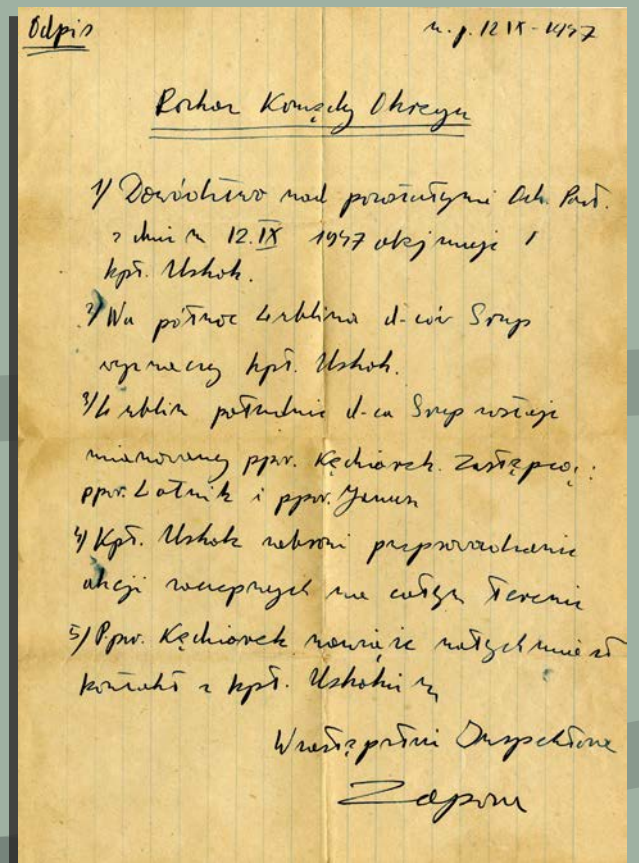 Odpis
m. p. 12 IX - 1947
Rozkaz Komędy Okręgu
1/ Dowództwo nad pozostałymi Odz. Part.
z dniem 12.IX 1947 obejmuje
kpt. Uskok.
2/ Na północ Lublina d-ców Grup
wyznaczy kpt. Uskok.
3/ Lublin południe d-ca Grup zostaje
mianowany ppor. Kędziorek. Zastępcą:
ppor. Lotnik i ppor. Janusz
4/ Kpt. Uskok zabroni przeprowadzania
akcji zaczepnych na całym terenie
5/ Ppor. Kędziorek nawiąże natychmiast
kontakt z kpt. Uskokiem
W zastępstwie Inspektora
Zapora